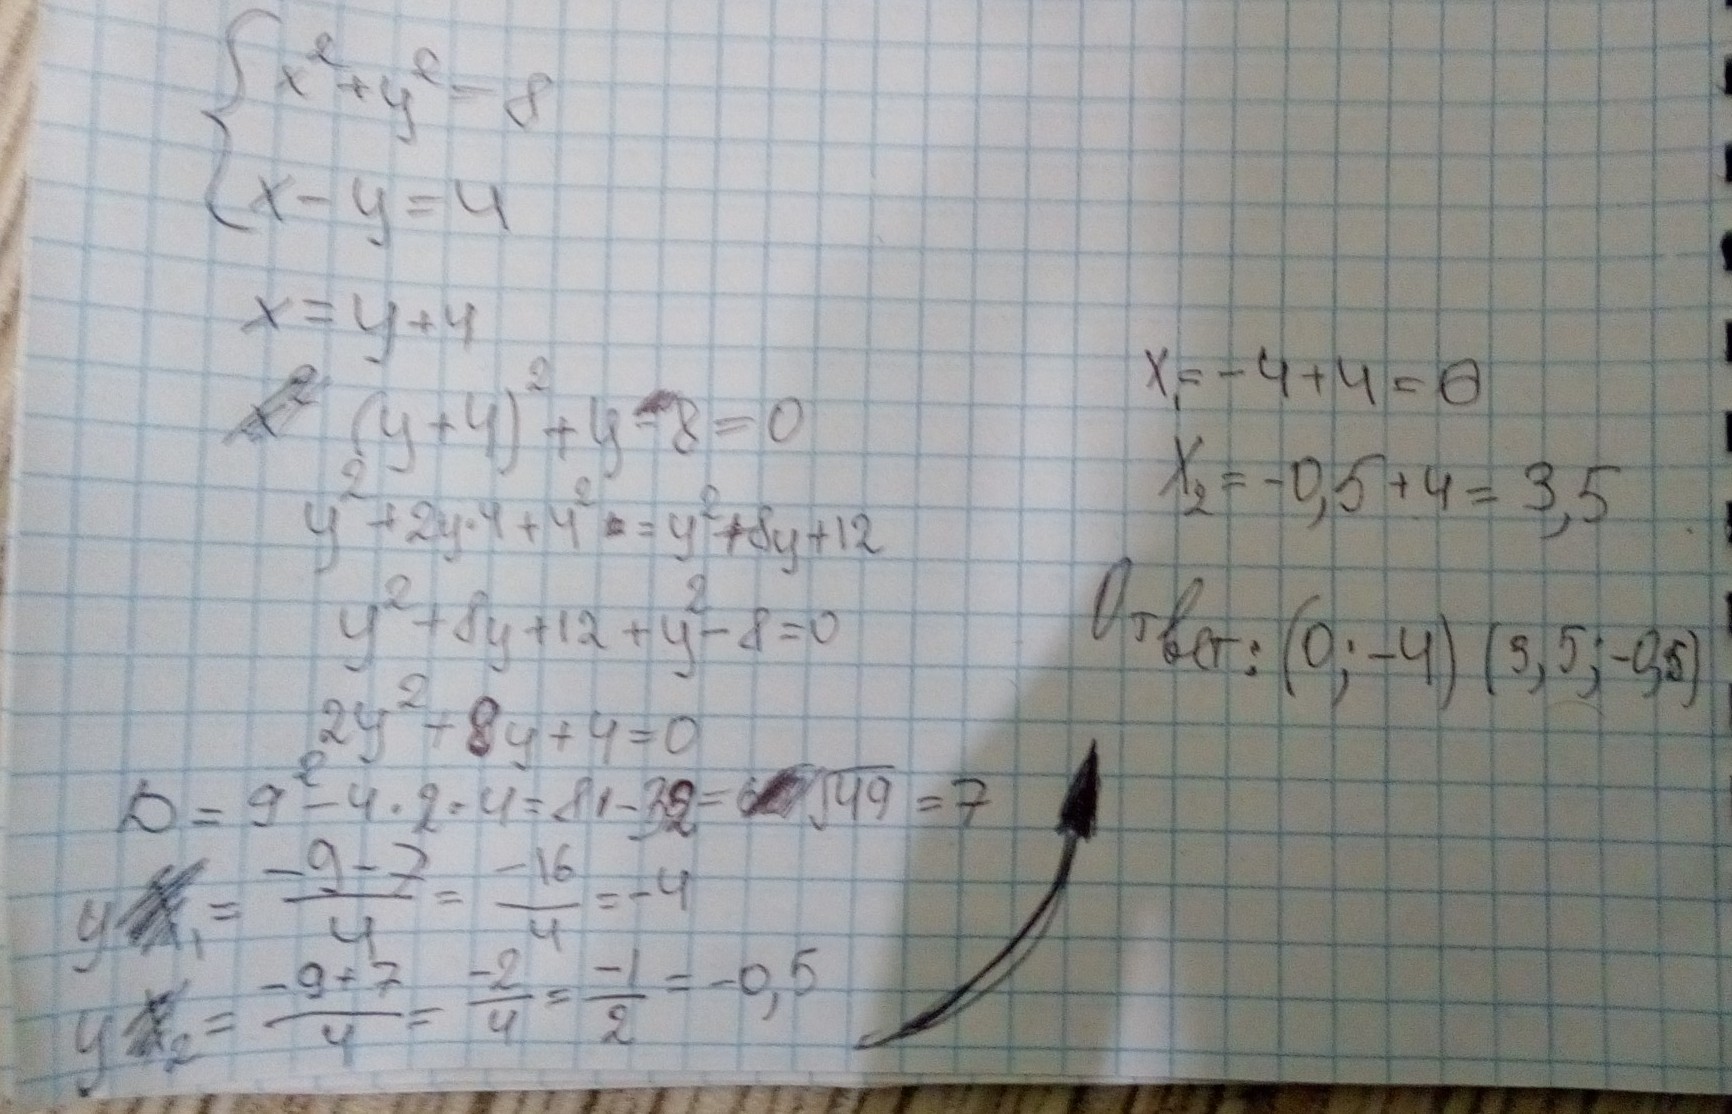 {x²+y²=8
{x-y=4
x=y+4
(y+4)²+y-8=0
y²+2y·4+4²=y²+8y+12
y²+8y+12+y²-8=0
2y²+8y+4=0
D=9²-4·2·4=81-32=√49=7
y₁=(-9-7)/4=-16/4=-4
y₂=(-9+7)/4=-2/4=-1/2=-0,5
x₁=-4+4=0
x₂=-0,5+4=3,5
Ответ: (0;-4) (3,5;-0,5)